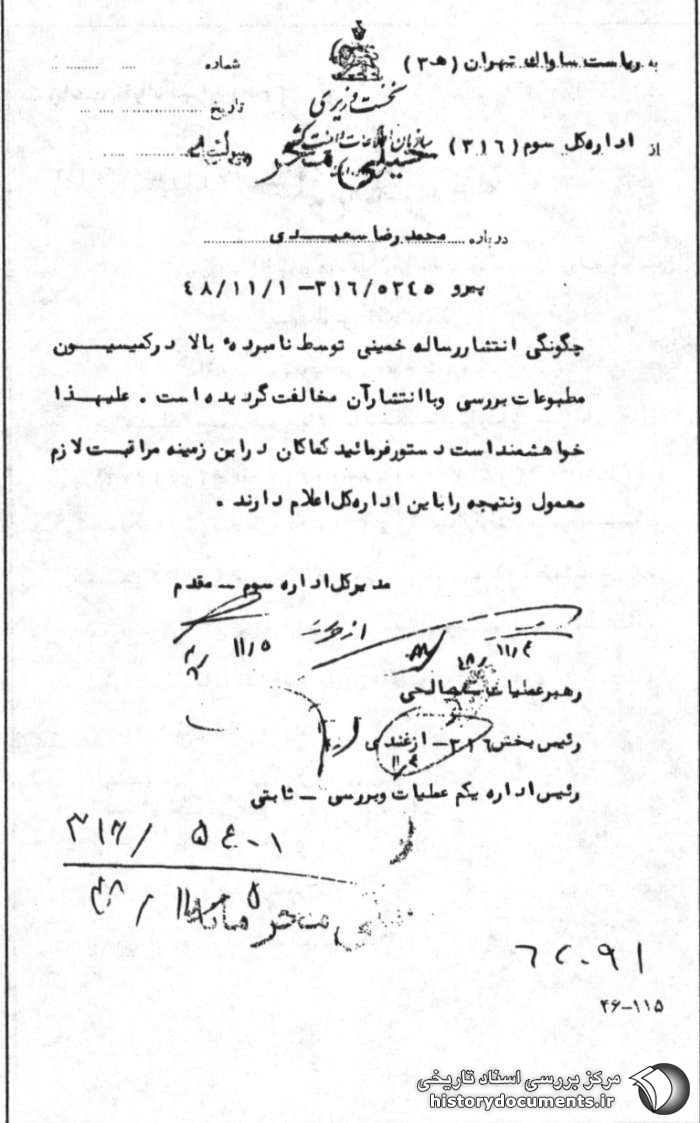 به ریاست ساواک تهران (هـ ۳)
شماره
نخست وزیری
تاریخ
سازمان اطلاعات و امنیت کشور
از اداره کل سوم (۳۱۶)
پیوست
خیلی محرمانه
درباره محمد رضا سعیدی
پیرو ۳۱۶/۵۲۴۵ - ۴۸/۱۱/۱
چگونگی انتشار رساله خمینی توسط نامبرده بالا در کمیسیون
مطبوعات بررسی و با انتشار آن مخالفت گردیده است . علیهذا
خواهشمند است دستور فرمائید کماکان در این زمینه مراقبت لازم
معمول و نتیجه را باین اداره کل اعلام دارند .
مدیر کل اداره سوم - مقدم
۱۱/۵
۴۸/۱۱/۴
رهبر عملیات صالحی
رئیس بخش ۳۱۶ - ازغندی
رئیس اداره یکم عملیات و بررسی - ثابتی
۳۱۶/ ۵۴۰۱
۴۸/ ۱۱/ ۵
خیلی محرمانه
۶۲۰۹۱
۴۶-۱۱۵
مرکز بررسی اسناد تاریخی
historydocuments.ir